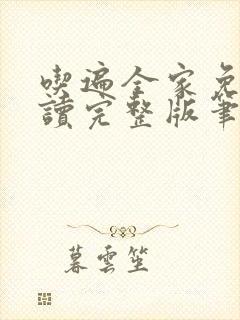 喫遍全家免
讀完整版筆
暮雲笙